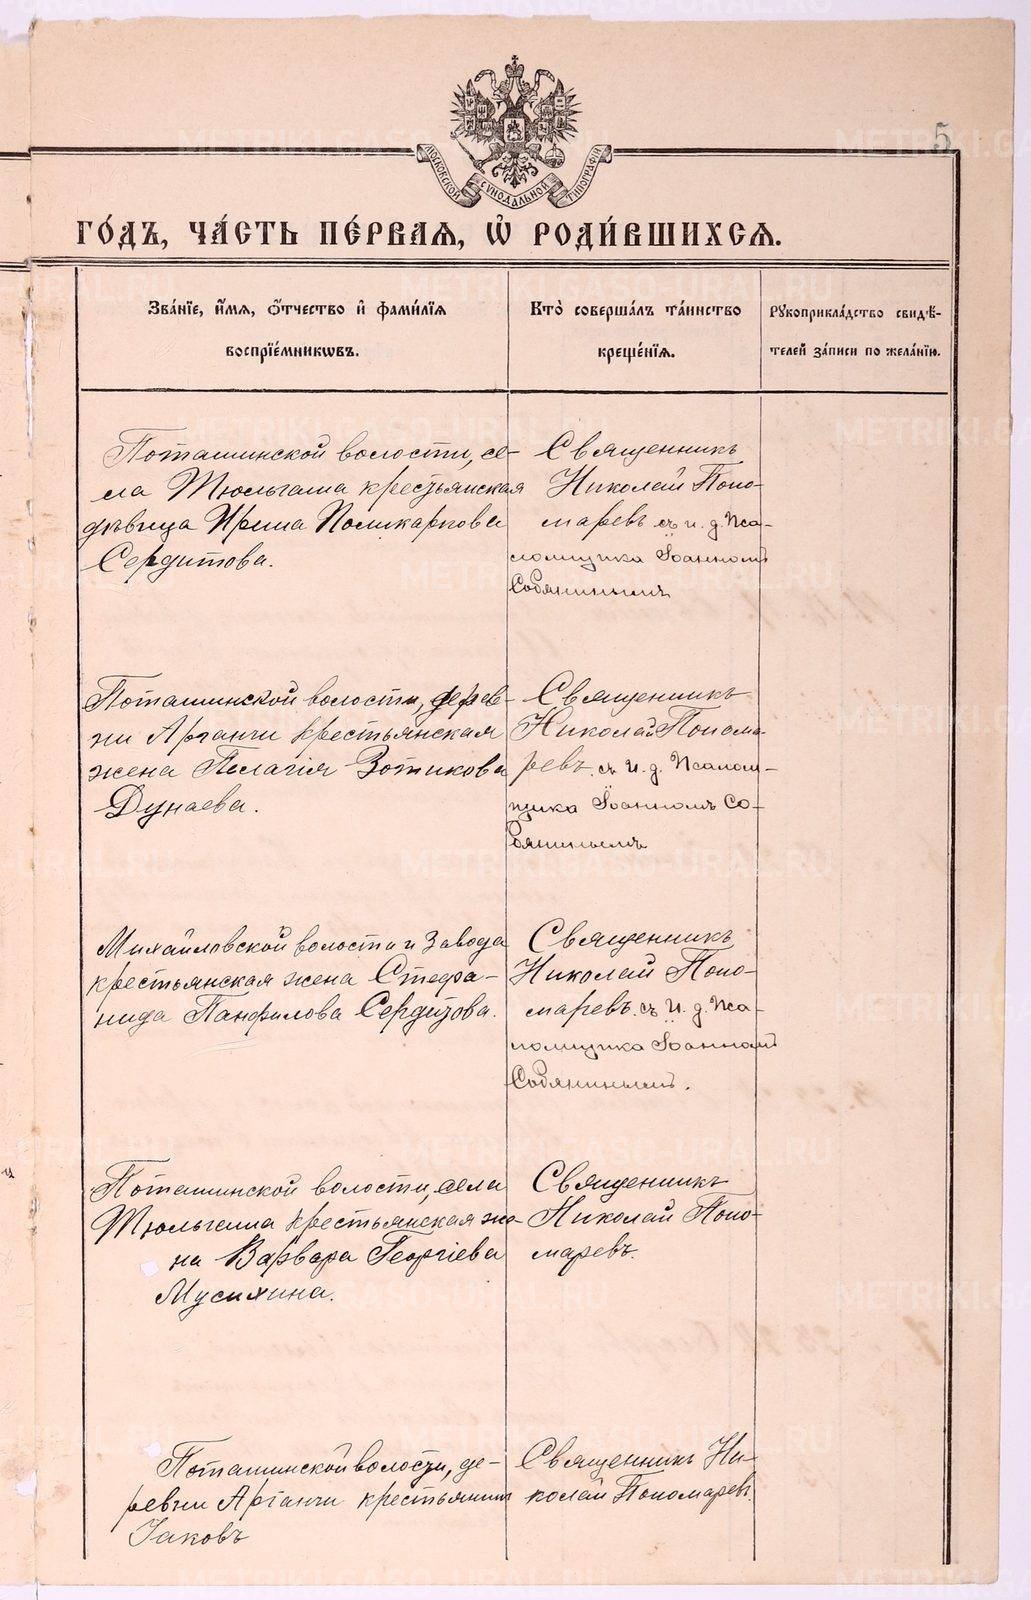 5
МОСКОВСКОЙ СУНОДАЛЬНОЙ ТИПОГРАФІИ
ГО́ДЪ, ЧА́СТЬ ПЕ́РВАѦ, Ѡ҆ РОДИ́ВШИХСѦ.
Зва́нїе, и҆́мѧ, ѻ҆́тчество и҆ фами́лїѧ
воспрїе́мникѡвъ.
Кто̀ соверша́лъ та́инство
креще́нїѧ.
Рꙋкоприкла́дство свидѣ́-
телей за́писи по жела́нїю.
Поташинской волости, се-
ла Тюльгаша крестьянская
дѣвица Ирина Поликарпова
Сердитова.
Священникъ
Николай Поно-
маревъ съ и. д. Пса-
ломщика Іоанномъ
Собянинымъ
Поташинской волости, дерев-
ни Арганчи крестьянская
жена Пелагія Зотикова
Дунаева.
Священникъ
Николай Понома-
ревъ съ И. д. Псалом-
щика Іоанномъ Со-
бянинымъ
Михайловской волости и Завода
крестьянская жена Стефа-
нида Панфилова Сердитова.
Священникъ
Николай Поно-
маревъ съ И. д. Пса-
ломщика Іоанномъ
Собянинымъ.
Поташинской волости, села
Тюльгаша крестьянская же-
на Варвара Георгіева
Мусихина.
Священникъ
Николай Поно-
маревъ.
Поташинской волости, де-
ревни Арганчи крестьянинъ
Іаковъ
Священникъ Ни-
колай Пономаревъ.
METRIKI.GASO-URAL.RU